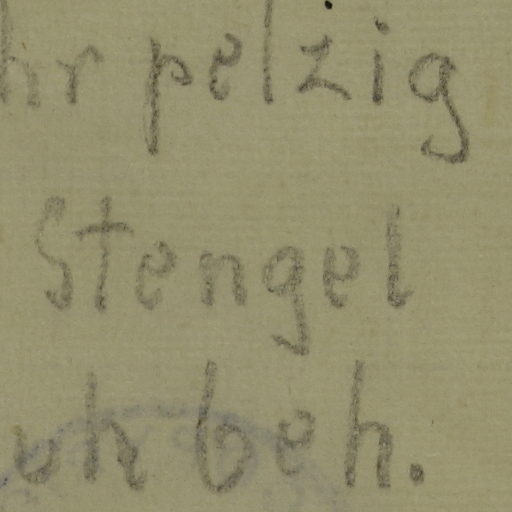 hr pelzig
Stengel
uh beh.